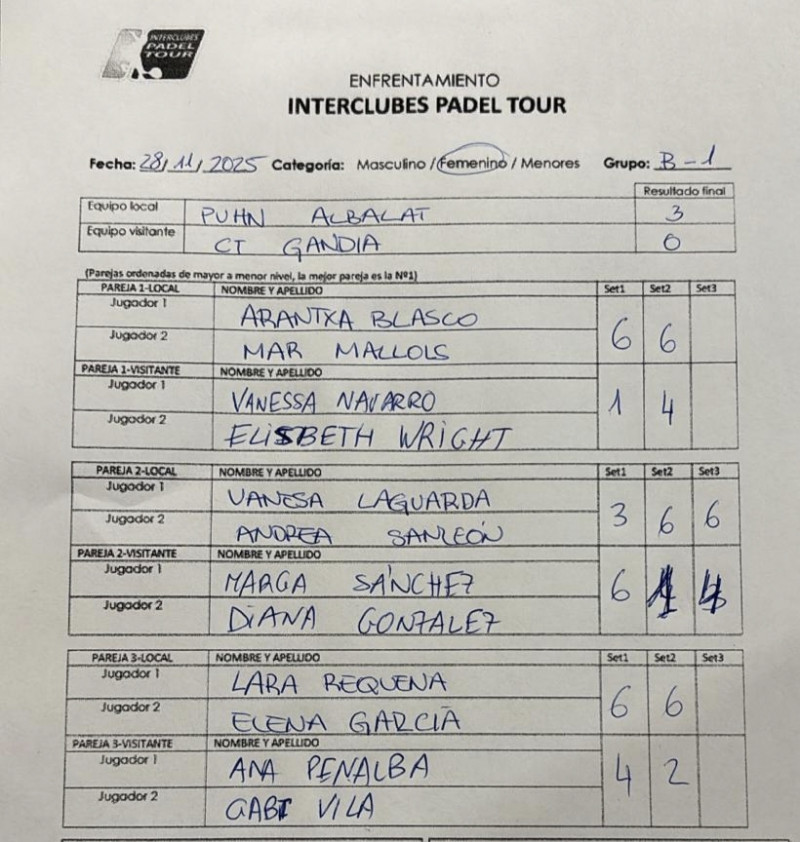 INTERCLUBES
PADEL
TOUR
ENFRENTAMIENTO
INTERCLUBES PADEL TOUR
Fecha: 28/11/2025 Categoría: Masculino / Femenino / Menores Grupo: B-1
Resultado final
Equipo local PUHN ALBALAT 3
Equipo visitante CT GANDIA 0
(Parejas ordenadas de mayor a menor nivel, la mejor pareja es la Nº1)
PAREJA 1-LOCAL NOMBRE Y APELLIDO Set1 Set2 Set3
Jugador 1 ARANTXA BLASCO
6 6
Jugador 2 MAR MALLOLS
PAREJA 1-VISITANTE NOMBRE Y APELLIDO
Jugador 1 VANESSA NAVARRO
1 4
Jugador 2 ELISBETH WRIGHT
PAREJA 2-LOCAL NOMBRE Y APELLIDO Set1 Set2 Set3
Jugador 1 VANESA LAGUARDA
3 6 6
Jugador 2 ANDREA SANLEÓN
PAREJA 2-VISITANTE NOMBRE Y APELLIDO
Jugador 1 MARGA SÁNCHEZ
6
Jugador 2 DIANA GONZALEZ
PAREJA 3-LOCAL NOMBRE Y APELLIDO Set1 Set2 Set3
Jugador 1 LARA REQUENA
6 6
Jugador 2 ELENA GARCIA
PAREJA 3-VISITANTE NOMBRE Y APELLIDO
Jugador 1 ANA PENALBA
4 2
Jugador 2 GABI VILA